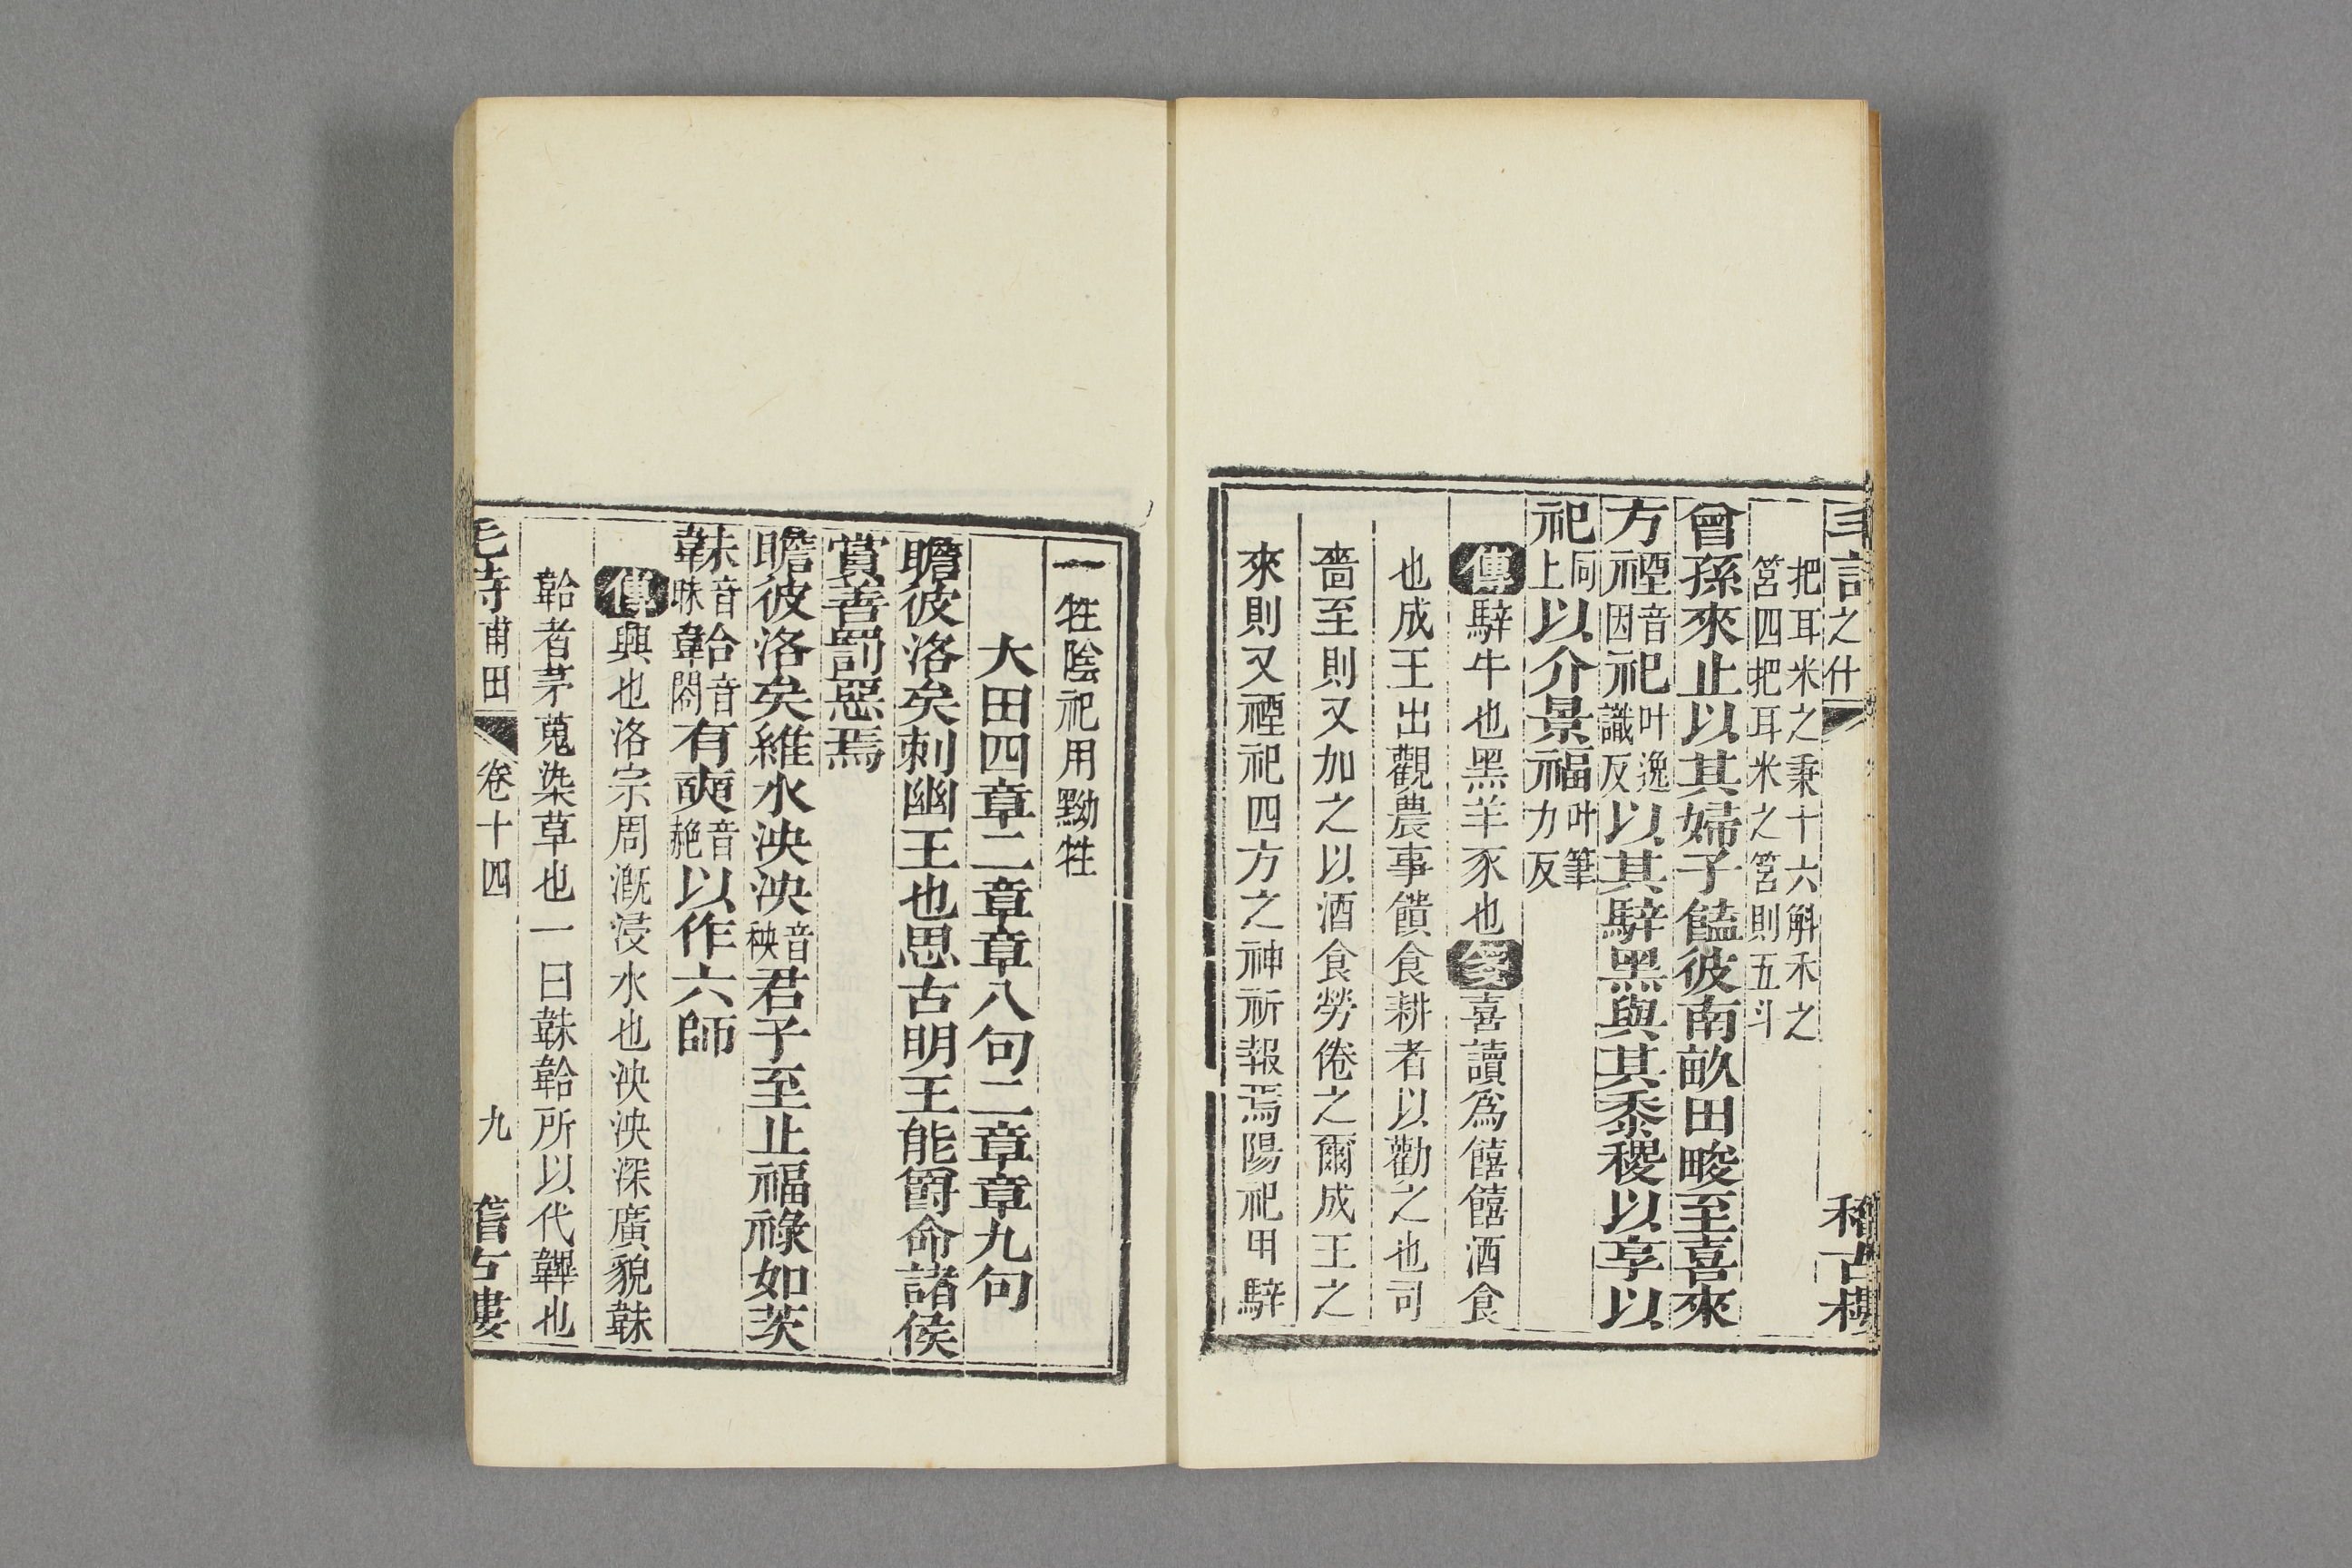 之什
稽古樓
把耳米之秉十六斛禾之
筥四把耳米之筥則五斗
曾孫來止以其婦子饁彼南畝田畯至喜來
方禋音因祀叶逸識反以其騂黑與其黍稷以享以
祀同上以介景福叶筆力反
傳騂牛也黑羊豕也箋喜讀爲饎饎酒食
也成王出觀農事饋食耕者以勸之也司
嗇至則又加之以酒食勞倦之爾成王之
來則又禋祀四方之神祈報焉陽祀用騂
一牲陰祀用黝牲
大田四章二章章八句二章章九句
瞻彼洛矣刺幽王也思古明王能爵命諸侯
賞善罰惡焉
瞻彼洛矣維水泱泱音秧君子至止福祿如茨
韎音昧韐音閤有奭音赩以作六師
傳興也洛宗周漑浸水也泱泱深廣貌韎
韐者茅蒐染草也一曰韎韐所以代韠也
毛詩甫田
卷十四
九
稽古樓